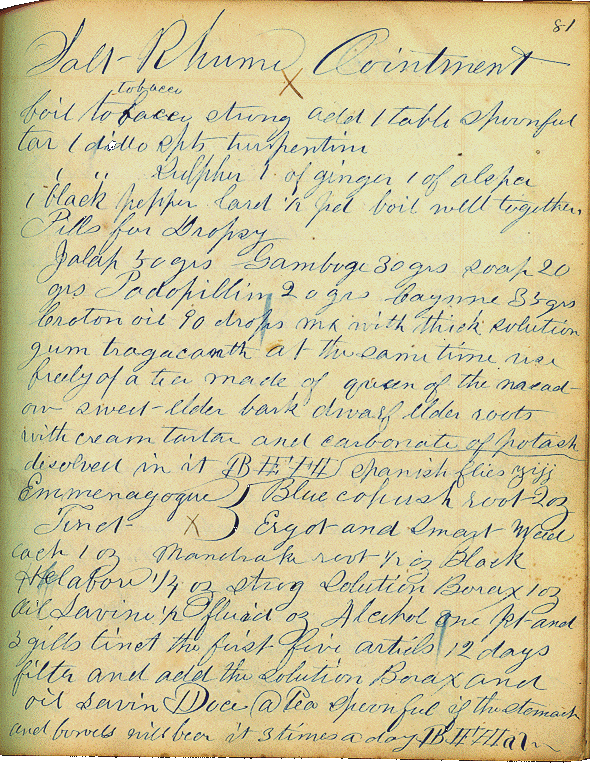 81
Salt-Rhume Ointment
tobacco
boil tobacco strong add 1 table spoonful
tar 1 ditto spts turpentine
" " Sulpher 1 of ginger 1 of
1 black pepper lard 1/2 pd boil well together
Pills for Dropsy
Jalap 50 grs Gamboge 30 grs soap 20
grs Podopillin 20 grs Caynne 35 grs
Croton oil 90 drops mx with thick solution
gum tragacanth at the same time use
freely of a tea made of queen of the mead-
ow sweet-elder bark dwarf elder roots
with cream tartar and carbonate of potash
disolved in it Spanish flies
Emmenagogue } Blue cohush root 2 oz
Tinct- X Ergot and Smart Weed
each 1 oz Mandrake root 1/2 oz Black
Helabore 1/4 oz strog Solution Borax 1 oz
Oil Savine 1/2 fluid oz Alcohol one pt and
3 gills tinct the first five articls 12 days
filter and add the solution Borax and
oil Savin Doce @ Tea spoonful if the stomach
and bowels will bear it 3 times a day